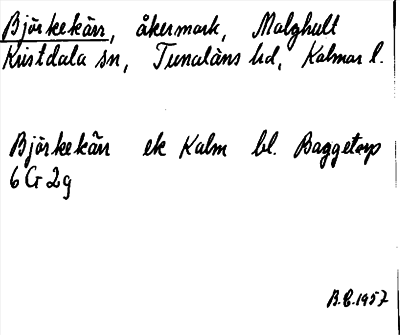 Björkekärr, åkermark, Malghult
Kristdala sn, Tunaläns hd, Kalmar l.
Björkekärr ek Kalm bl. Baggetorp
6 G 2g
B.E.1957